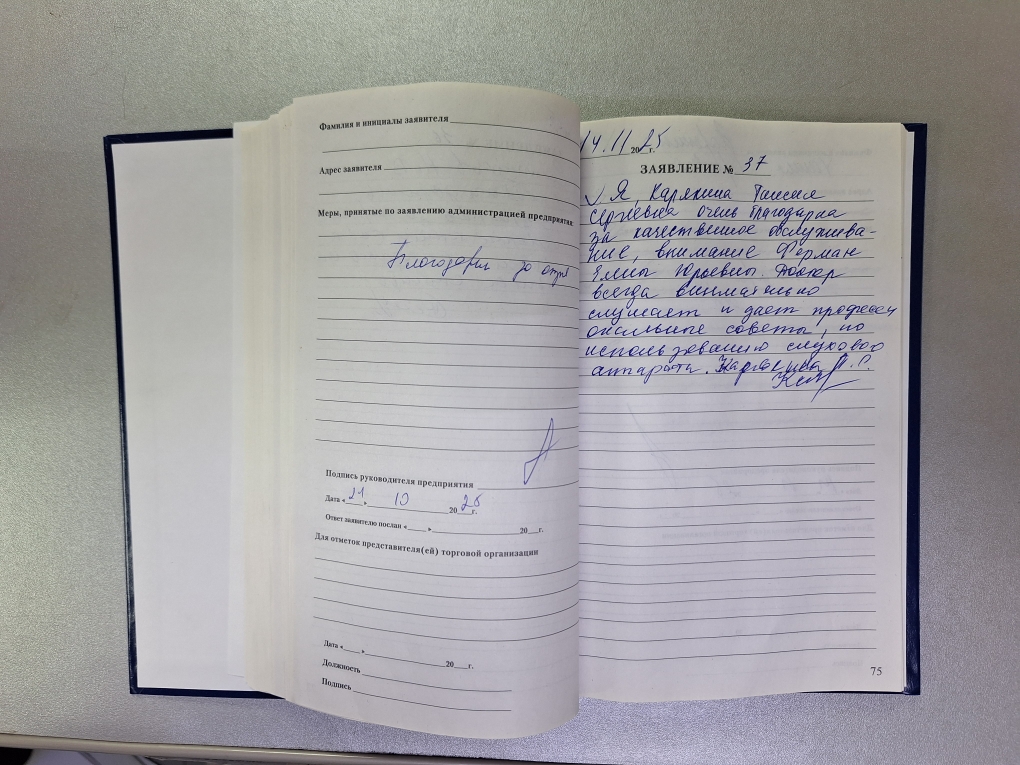 Фамилия и инициалы заявителя
Адрес заявителя
Меры, принятые по заявлению администрацией предприятия
Благодарим за отзыв
Подпись руководителя предприятия
Дата « 21 » 10 20 25 г.
Ответ заявителю послан « » 20 г.
Для отметок представителя(ей) торговой организации
Дата « » 20 г.
Должность
Подпись
14.11 20 25 г.
ЗАЯВЛЕНИЕ № 37
Я, Карякина Таисия
Сергеевна очень благодарна
за качественное обслужива-
ние, внимание Ферман
Елены Юрьевны. Доктор
всегда внимательно
слушает и дает професси
ональные советы, по
использованию слухового
аппарата. Карякина Т.С.
75